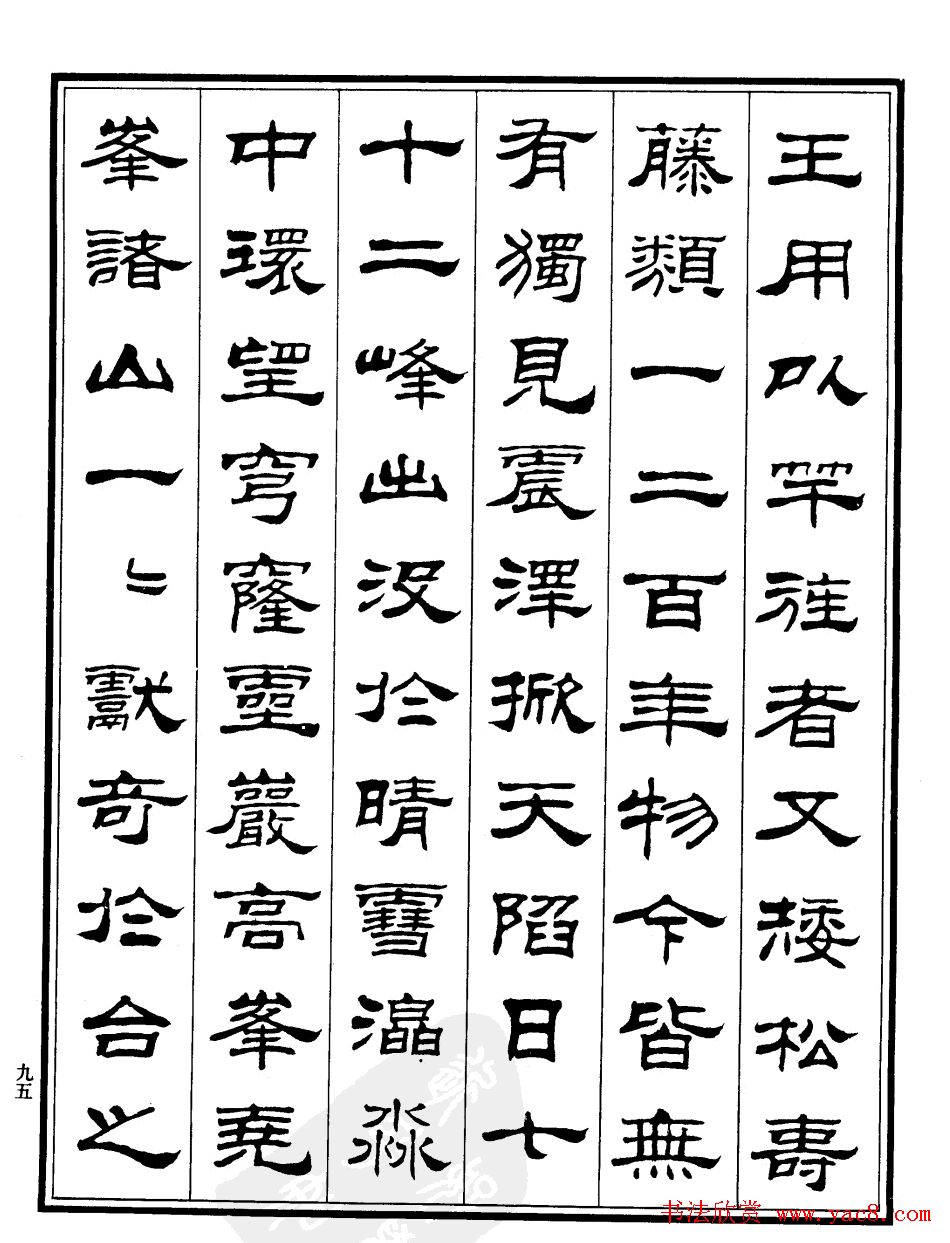 王用以竿旌者又矮松壽
藤類一二百年物今皆無
有獨見震澤掀天陷日七
十二峰出没於晴雪淼
中環望穹窿靈巖高峯堯
峯諸山一〻獻奇於台之
九五
书法欣赏 www.yac8.com